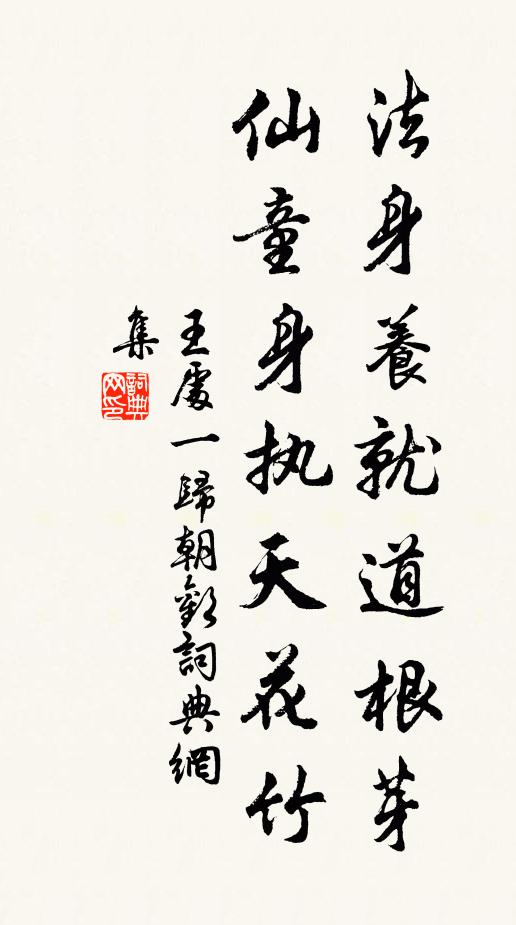 法身養就道根芽
仙童身执天花竹
王處一歸朝歡詞典網
集
詞典
网印